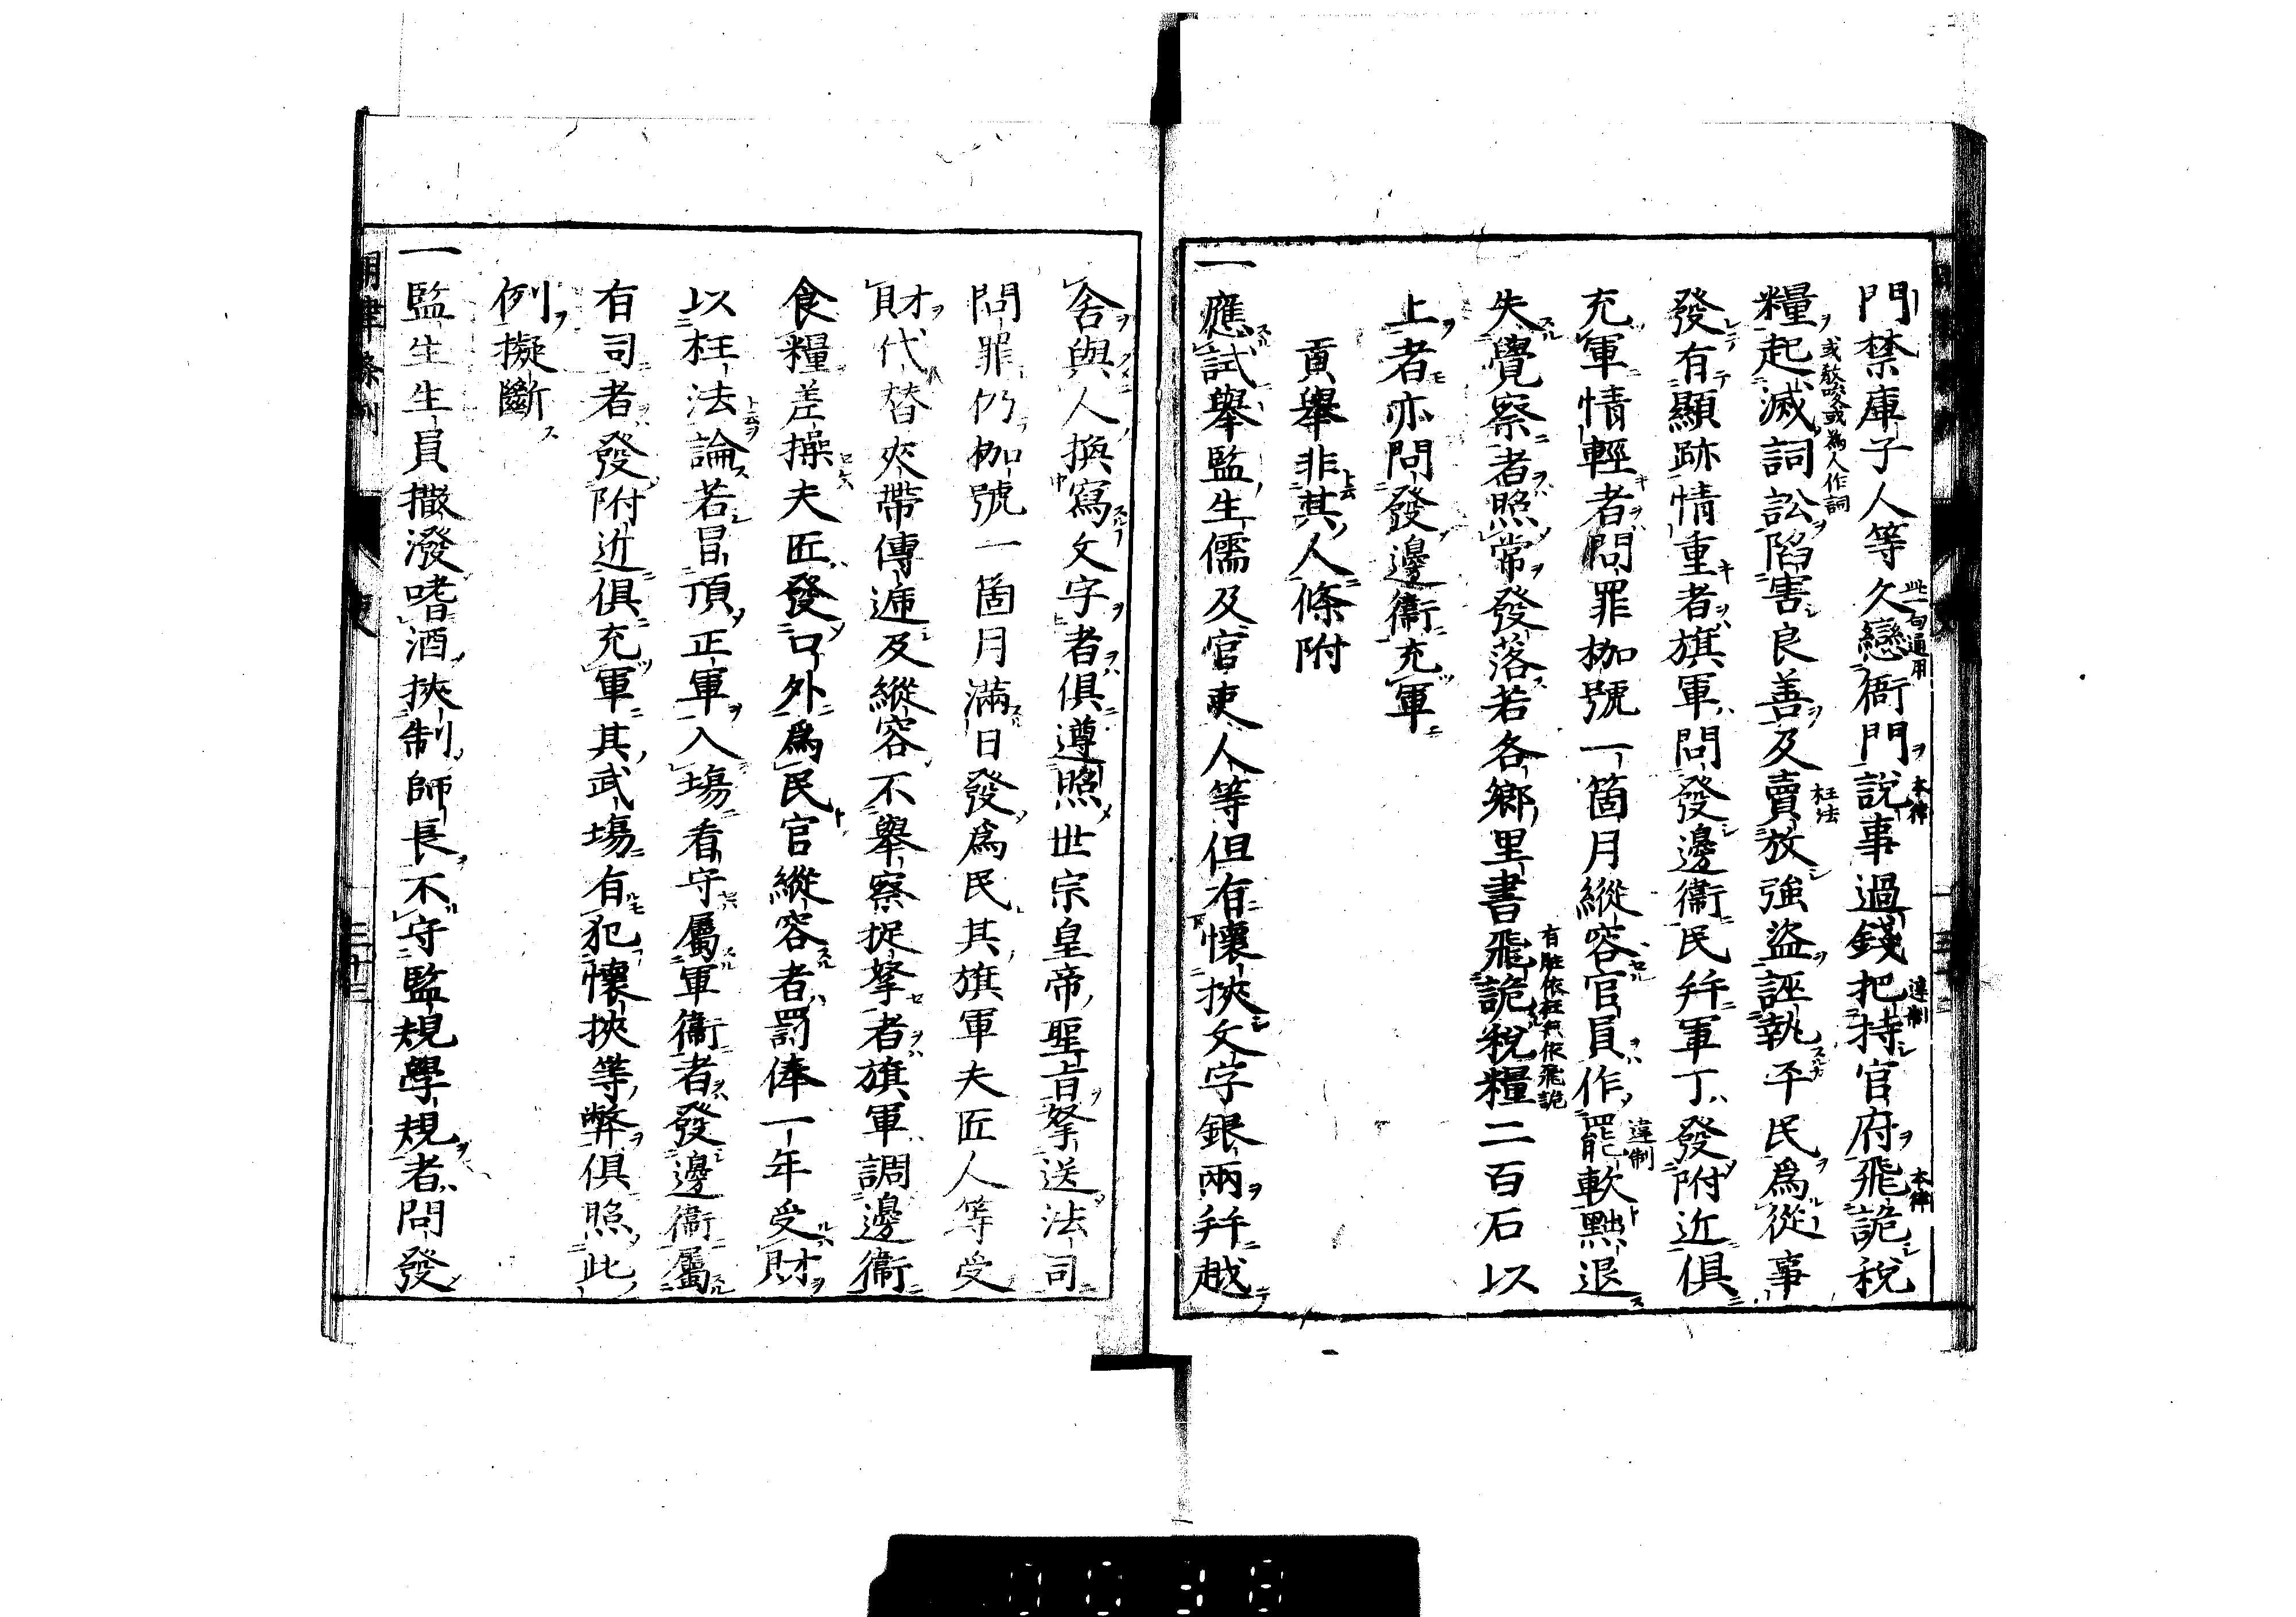 門禁庫子人等久戀衙門說事過錢把持官府飛詭稅
此一句通用
本律
違制
本律
糧起滅詞訟陷害良善及賣放強盜誣執平民爲從事
或教唆或為人作詞
枉法
發有顯跡情重者旗軍問發邊衞民幷軍丁發附近俱
充軍情輕者問罪枷號一箇月縱容官員作罷軟黜退
違制
失覺察者照常發落若各鄉里書飛詭稅糧二百石以
有賍依枉無依飛詭
上者亦問發邊衞充軍
貢舉非其人條附
一應試舉監生儒及官吏人等但有懷挾文字銀兩幷越
舍與人換寫文字者俱遵照世宗皇帝聖旨拏送法司
問罪仍枷號一箇月滿日發爲民其旗軍夫匠人等受
財代替夾帶傳遞及縱容不舉察捉拏者旗軍調邊衞
食糧差操夫匠發口外爲民官縱容者罰俸一年受財
以枉法論若冒頂正軍入場看守屬軍衞者發邊衞屬
有司者發附近俱充軍其武場有犯懷挾等弊俱照此
例擬斷
一監生生員撒潑嗜酒挾制師長不守監規學規者問發
明律條例
吏
二十三
0038